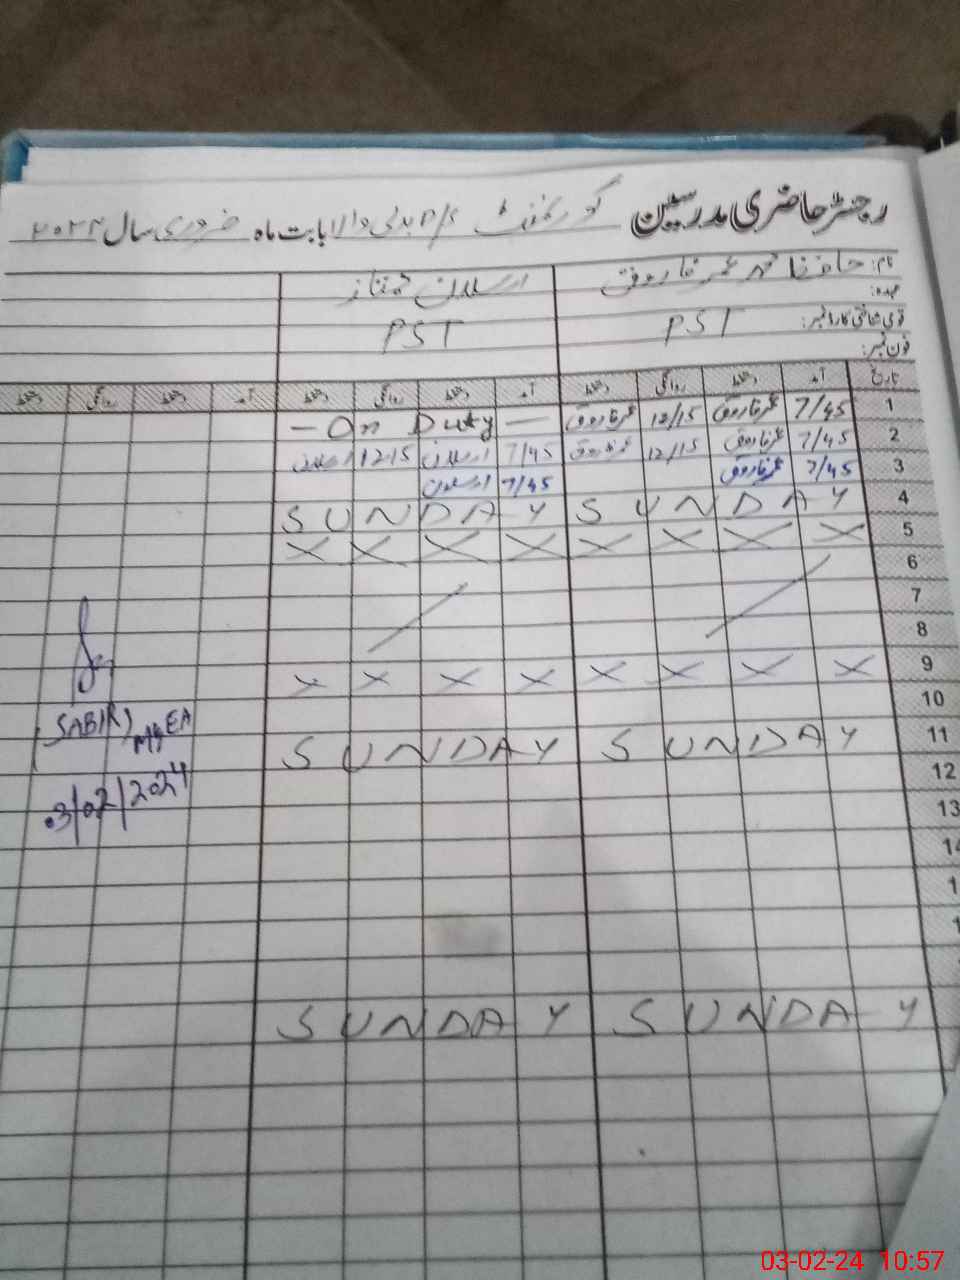 رجسٹر حاضری مدرسین گورنمنٹ P/S بدلی والا بابت ماہ فروری سال ۲۰۲۴
نام: حافظ محمد عمر فاروق ارسلان ممتاز
عہدہ:
PST PST
قومی شناختی کارڈ نمبر:
فون نمبر:
تاریخ آمد دستخط روانگی دستخط آمد دستخط روانگی دستخط آمد دستخط روانگی دستخط
1 7/45 عمرفاروق 12/15 عمرفاروق — On Duty —
2 7/45 عمرفاروق 12/15 عمرفاروق 7/45 ارسلان 1215 ارسلان
3 7/45 عمرفاروق 7/45 ارسلان
4 SUNDAY SUNDAY
5 × × × × × × × ×
6
7
8
9 × × × × × × × ×
10
11 SUNDAY SUNDAY
12
13
14
SUNDAY SUNDAY
(SABIR) MEA
03/02/2024
03-02-24 10:57